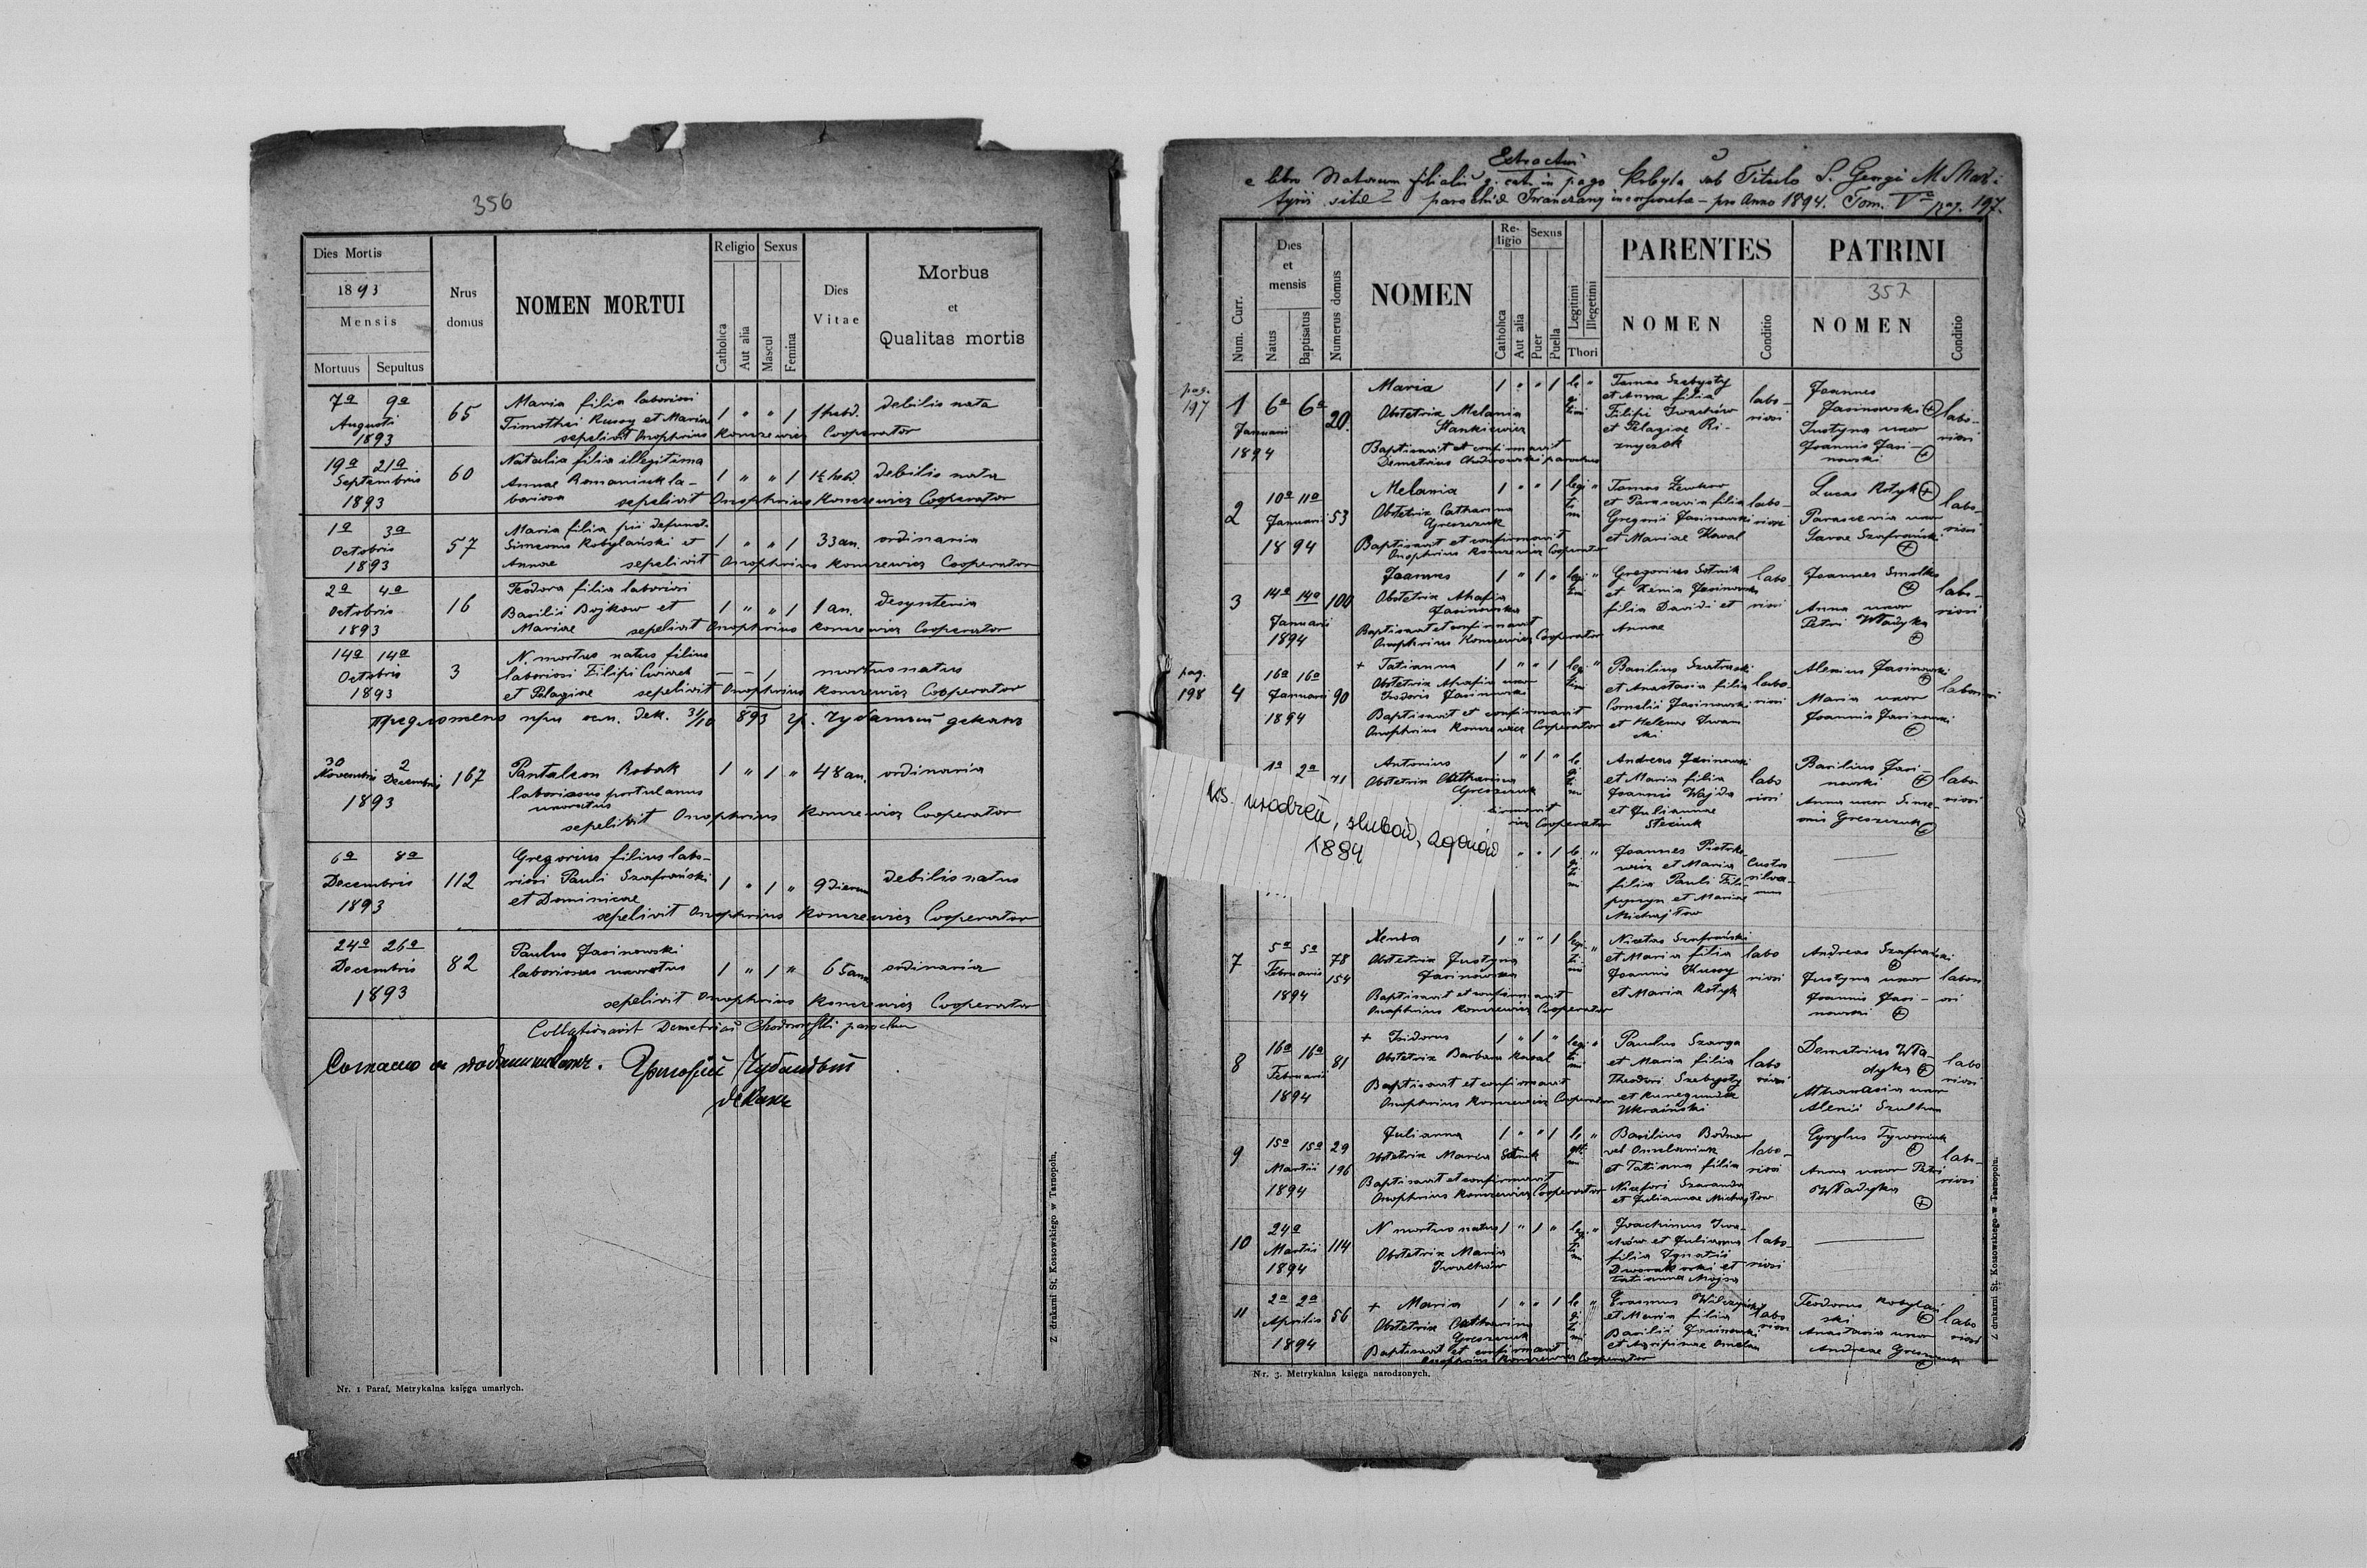 356
Dies Mortis
1893
Mensis
Mortuus Sepultus
Nrus domus
NOMEN MORTUI
Religio
Catholica
Aut alia
Sexus
Mascul
Femina
Dies Vitae
Morbus
et
Qualitas mortis
7a 9a
Augusti
1893
65
Maria filia laboriosi
Timothei Kussy et Mariae
1 " " 1
debilis nata
sepelivit Onophrius Konczewicz Cooperator
19a 21a
Septembris
1893
60
Natalia filia illegitima
Annae Romaniuk la-
boriosa
1 " " 1
debilis nata
sepelivit Onophrius Konczewicz Cooperator
1a 3a
Octobris
1893
57
Maria filia pii defunct.
Simeonis Kobylański et
Annae
1 " " 1
33 an.
ordinaria
sepelivit Onophrius Konczewicz Cooperator
2a 4a
Octobris
1893
16
Teodora filia laboriosi
Basilii Bojkow et
Mariae
1 " " 1
1 an.
desynteria
sepelivit Onophrius Konczewicz Cooperator
14a 14a
Octobris
1893
3
N. mortuus natus filius
laboriosi Filipi
et Pelagiae
mortuus natus
sepelivit Onophrius Konczewicz Cooperator
31/10 893
30 2
Novembris Decembris
1893
167
Pantaleon Robak
laboriosus portulanus
uxoratus
1 " 1 "
48 an.
ordinaria
sepelivit Onophrius Konczewicz Cooperator
6a 8a
Decembris
1893
112
Gregorius filius labo-
riosi Pauli Szafrański
et Dominicae
1 " 1 "
9 dierum
debilis natus
sepelivit Onophrius Konczewicz Cooperator
24a 26a
Decembris
1893
82
Paulus Jasinowski
laboriosus uxoratus
1 " 1 "
65 ann
ordinaria
sepelivit Onophrius Konczewicz Cooperator
Demetrius Chodorowski parochus
Z drukarni St. Kossowskiego w Tarnopolu.
Nr. 1 Paraf. Metrykalna księga umarłych.
Extractus
e libro Natorum in pago Kobyla sub Titulo S. Georgii M Mar-
tyris parochiae Iwanczany incorporata - pro Anno 1894. Tom. V pag. 197.
Num. Curr.
Dies
et
mensis
Natus
Baptisatus
Numerus domus
NOMEN
Re-
ligio
Catholica
Aut alia
Sexus
Puer
Puella
Legitimi
Illegetimi
Thori
PARENTES
NOMEN
Conditio
PATRINI
357
NOMEN
Conditio
pag.
197
1
6a 6a
Januarii
1894
20.
Maria
Obstetrix Melania
Stankiewicz
Baptisavit et confirmavit
Demetrius Chodorowski parochus
1 " " 1
Tomas Szebysty
et Anna filia
Filipi Iwachów
et Pelagiae Ri-
znyczok
labo-
riosi
Joannes
Jasinowski
Justyna uxor
Joannis Jasi-
nowski
labo-
riosi
2
10a 11a
Januarii
1894
53
Melania
Obstetrix Catharina
Greszczuk
Baptisavit et confirmavit
Onophrius Konczewicz Cooperator
1 " " 1
Tomas
et Parascevia filia
Gregorii Jasinowski
et Mariae Kowal
labo-
riosi
Lucas Kotyk
Parascevia uxor
Savae Szafrański
labo-
riosi
3
14a 14a
Januarii
1894
100
Joannes
Obstetrix Ahafia
Jasinowska
Baptisavit et confirmavit
Onophrius Konczewicz Cooperator
1 " 1 "
Gregorius Sotnik
et Xenia Jasinowska
filia Davidi et
Annae
labo
riosi
Joannes Smolka
Anna uxor
Petri Władyka
labo-
riosi
pag.
198
4
16a 16a
Januarii
1894
90
+ Tatianna
Obstetrix Ahafia uxor
Isidoris Jasinowski
Baptisavit et confirmavit
Onophrius Konczewicz Cooperator
1 " " 1
Basilius
et Anastasia filia
Cornelii Jasinowski
et Helenae Iwani-
cki
labo-
riosi
Alexius Jasinowski
Maria uxor
Joannis Jasinowski
laboriosi
1a 2a
71
Antonius
Obstetrix Catharina
Greszczuk
Cooperator
1 " 1 "
Andreas Jasinowski
et Maria filia
Joannis Wajda
et Juliannae
labo
riosi
Basilius Jasi-
nowski
Anna uxor Sime-
onis Greszczuk
labo
riosi
ks. urodzeń, ślubów, zgonów
1894
" " 1
Joannes Piotrko-
wicz et Maria
filia Pauli
et Mariae
Michajłow
custos
silva-
rum
7
5a 5a
Februarii
1894
78
154
Xenia
Obstetrix Justyna
Jasinowska
Baptisavit et confirmavit
Onophrius Konczewicz Cooperator
1 " " 1
Nicetas Szafrański
et Maria filia
Joannis Kussy
et Maria Kotyk
labo
riosi
Andreas Szafrański
Justyna uxor
Joannis Jasi-
nowski
8
16a 16a
Februarii
1894
81
+ Isidorus
Obstetrix Barbara Kowal
Baptisavit et confirmavit
Onophrius Konczewicz Cooperator
1 " 1 "
Paulus Szarga
et Maria filia
Theodori Szebysty
et Kunegundae
Ukraiński
labo
riosi
Demetrius Wła-
dyka
Athanasia uxor
Alexii
labo
riosi
9
15a 15a
Martii
1894
29
196
Julianna
Obstetrix Maria Sotnik
Baptisavit et confirmavit
Onophrius Konczewicz Cooperator
1 " " 1
Basilius Bodnar
vel Omelaniuk
et Tatianna filia
Nicefori Szaranda
et Juliannae Michajłow
labo-
riosi
Cyrylus Tywoniuk
Anna uxor Petri
Władyka
labo-
riosi
10
24a
Martii
1894
114
N mortuus natus
Obstetrix Maria
Iwachów
1 " 1 "
Joachimus Iwa-
chów et Julianna
filia Ignatii
Dworakowski et
Tatianna
labo-
riosi
11
2a 2a
Aprilis
1894
56
+ Maria
Obstetrix Catharina
Greszczuk
Baptisavit et confirmavit
Onophrius Konczewicz Cooperator
1 " " 1
Erasmus Wilczyński
et Maria filia
Basilii Jasinowski
et Agripinae Omelan
labo
riosi
Teodorus Kobylań
ski
Anastasia uxor
Andreae Greszczuk
labo
riosi
Z drukarni St. Kossowskiego w Tarnopolu.
Nr. 3. Metrykalna księga narodzonych.